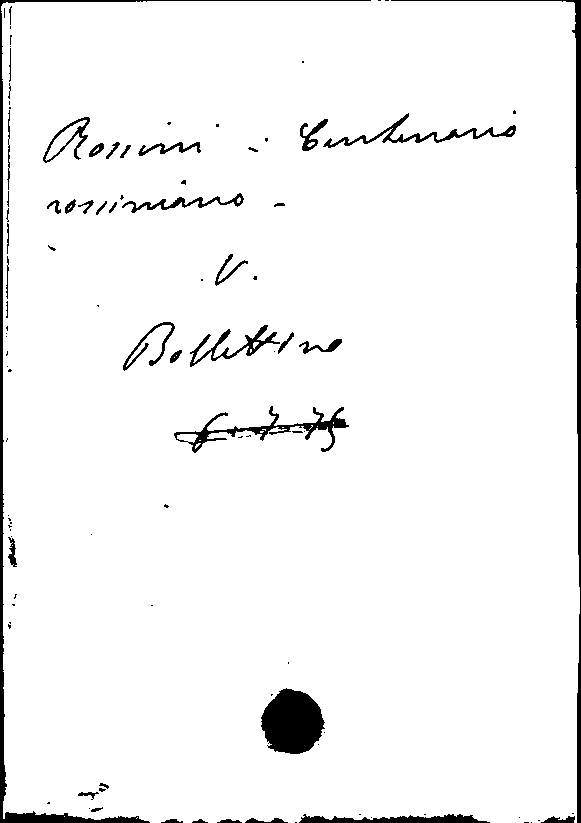 Rossini - Centenario
rossiniano -
V.
Bollettino
6.7.75